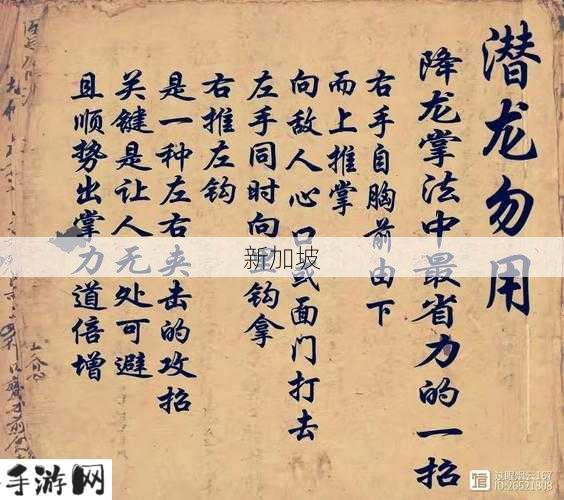 潜龙勿用
降龙掌法中最省力的一招
右手自胸前由下
而上推掌
向敌人心口或面门打去
左手同时向钩拿
右推左钩
是一种左右夹击的攻招
关键是让人无处可避
且顺势出掌力道倍增
新加坡
手游网